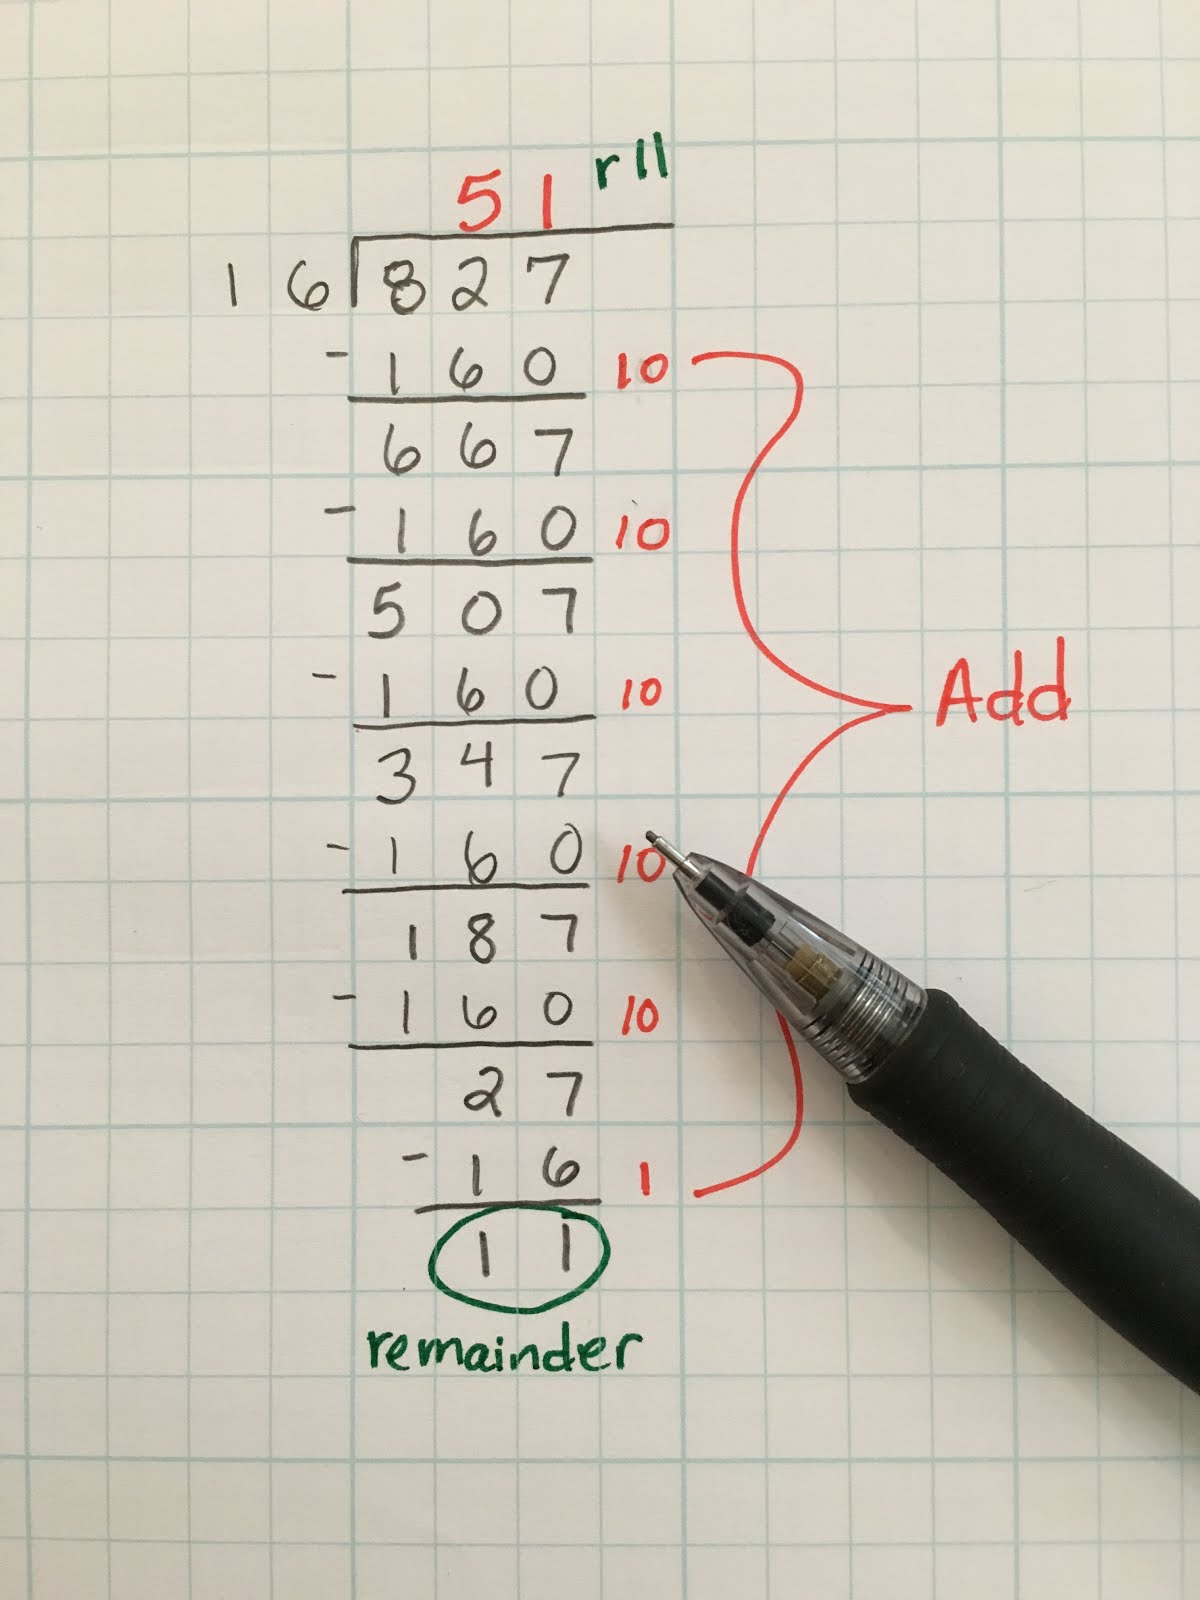 51 r11
16 827
- 160 10
667
- 160 10
507
- 160 10
Add
347
- 160 10
187
- 160 10
27
- 16 1
11
remainder